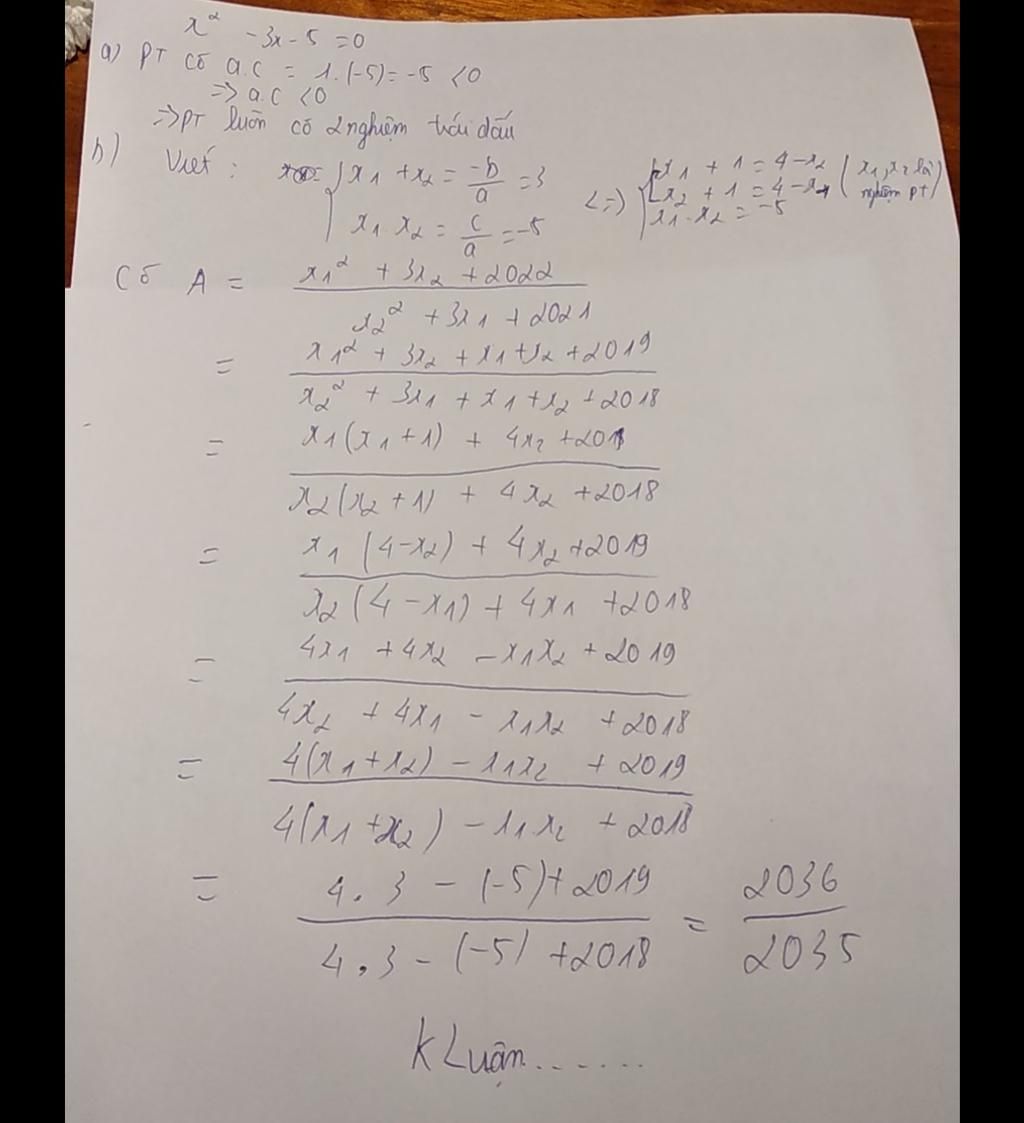 x² - 3x - 5 = 0
a) PT có a.c = 1.(-5) = -5 < 0
=> a.c < 0
=> PT luôn có 2 nghiệm trái dấu
b) Viét : { x1 + x2 = -b/a = 3
x1 . x2 = c/a = -5
<=> { [ x1 + 1 = 4 - x2 ( x1, x2 là
x2 + 1 = 4 - x1 nghiệm PT )
x1 . x2 = -5
Có A = x1² + 3x2 + 2022
x2² + 3x1 + 2021
= x1² + 3x2 + x1 + x2 + 2019
x2² + 3x1 + x1 + x2 + 2018
= x1(x1 + 1) + 4x2 + 2019
x2(x2 + 1) + 4x2 + 2018
= x1 (4 - x2) + 4x2 + 2019
x2 (4 - x1) + 4x1 + 2018
= 4x1 + 4x2 - x1x2 + 2019
4x2 + 4x1 - x1x2 + 2018
= 4(x1 + x2) - x1x2 + 2019
4(x1 + x2) - x1.x2 + 2018
= 4.3 - (-5) + 2019 = 2036
4.3 - (-5) + 2018 2035
K Luận.......